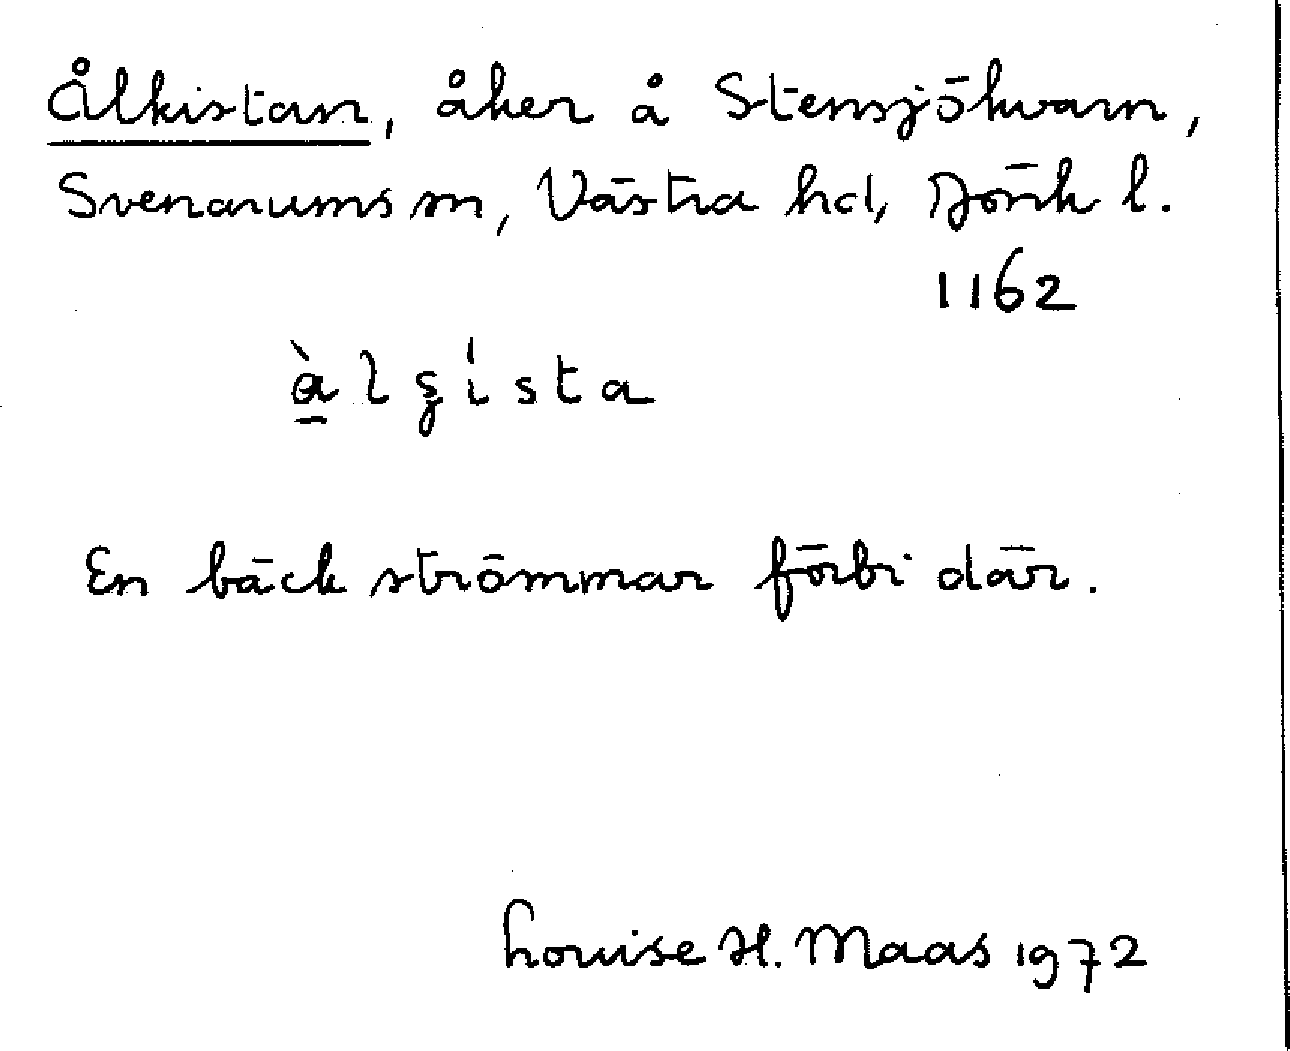 Ålkistan, åker å Stensjökvarn,
Svenarums sn, Västra hd, Jönk l.
1162
à̱lʂísta
En bäck strömmar förbi där.
Louise H. Maas 1972